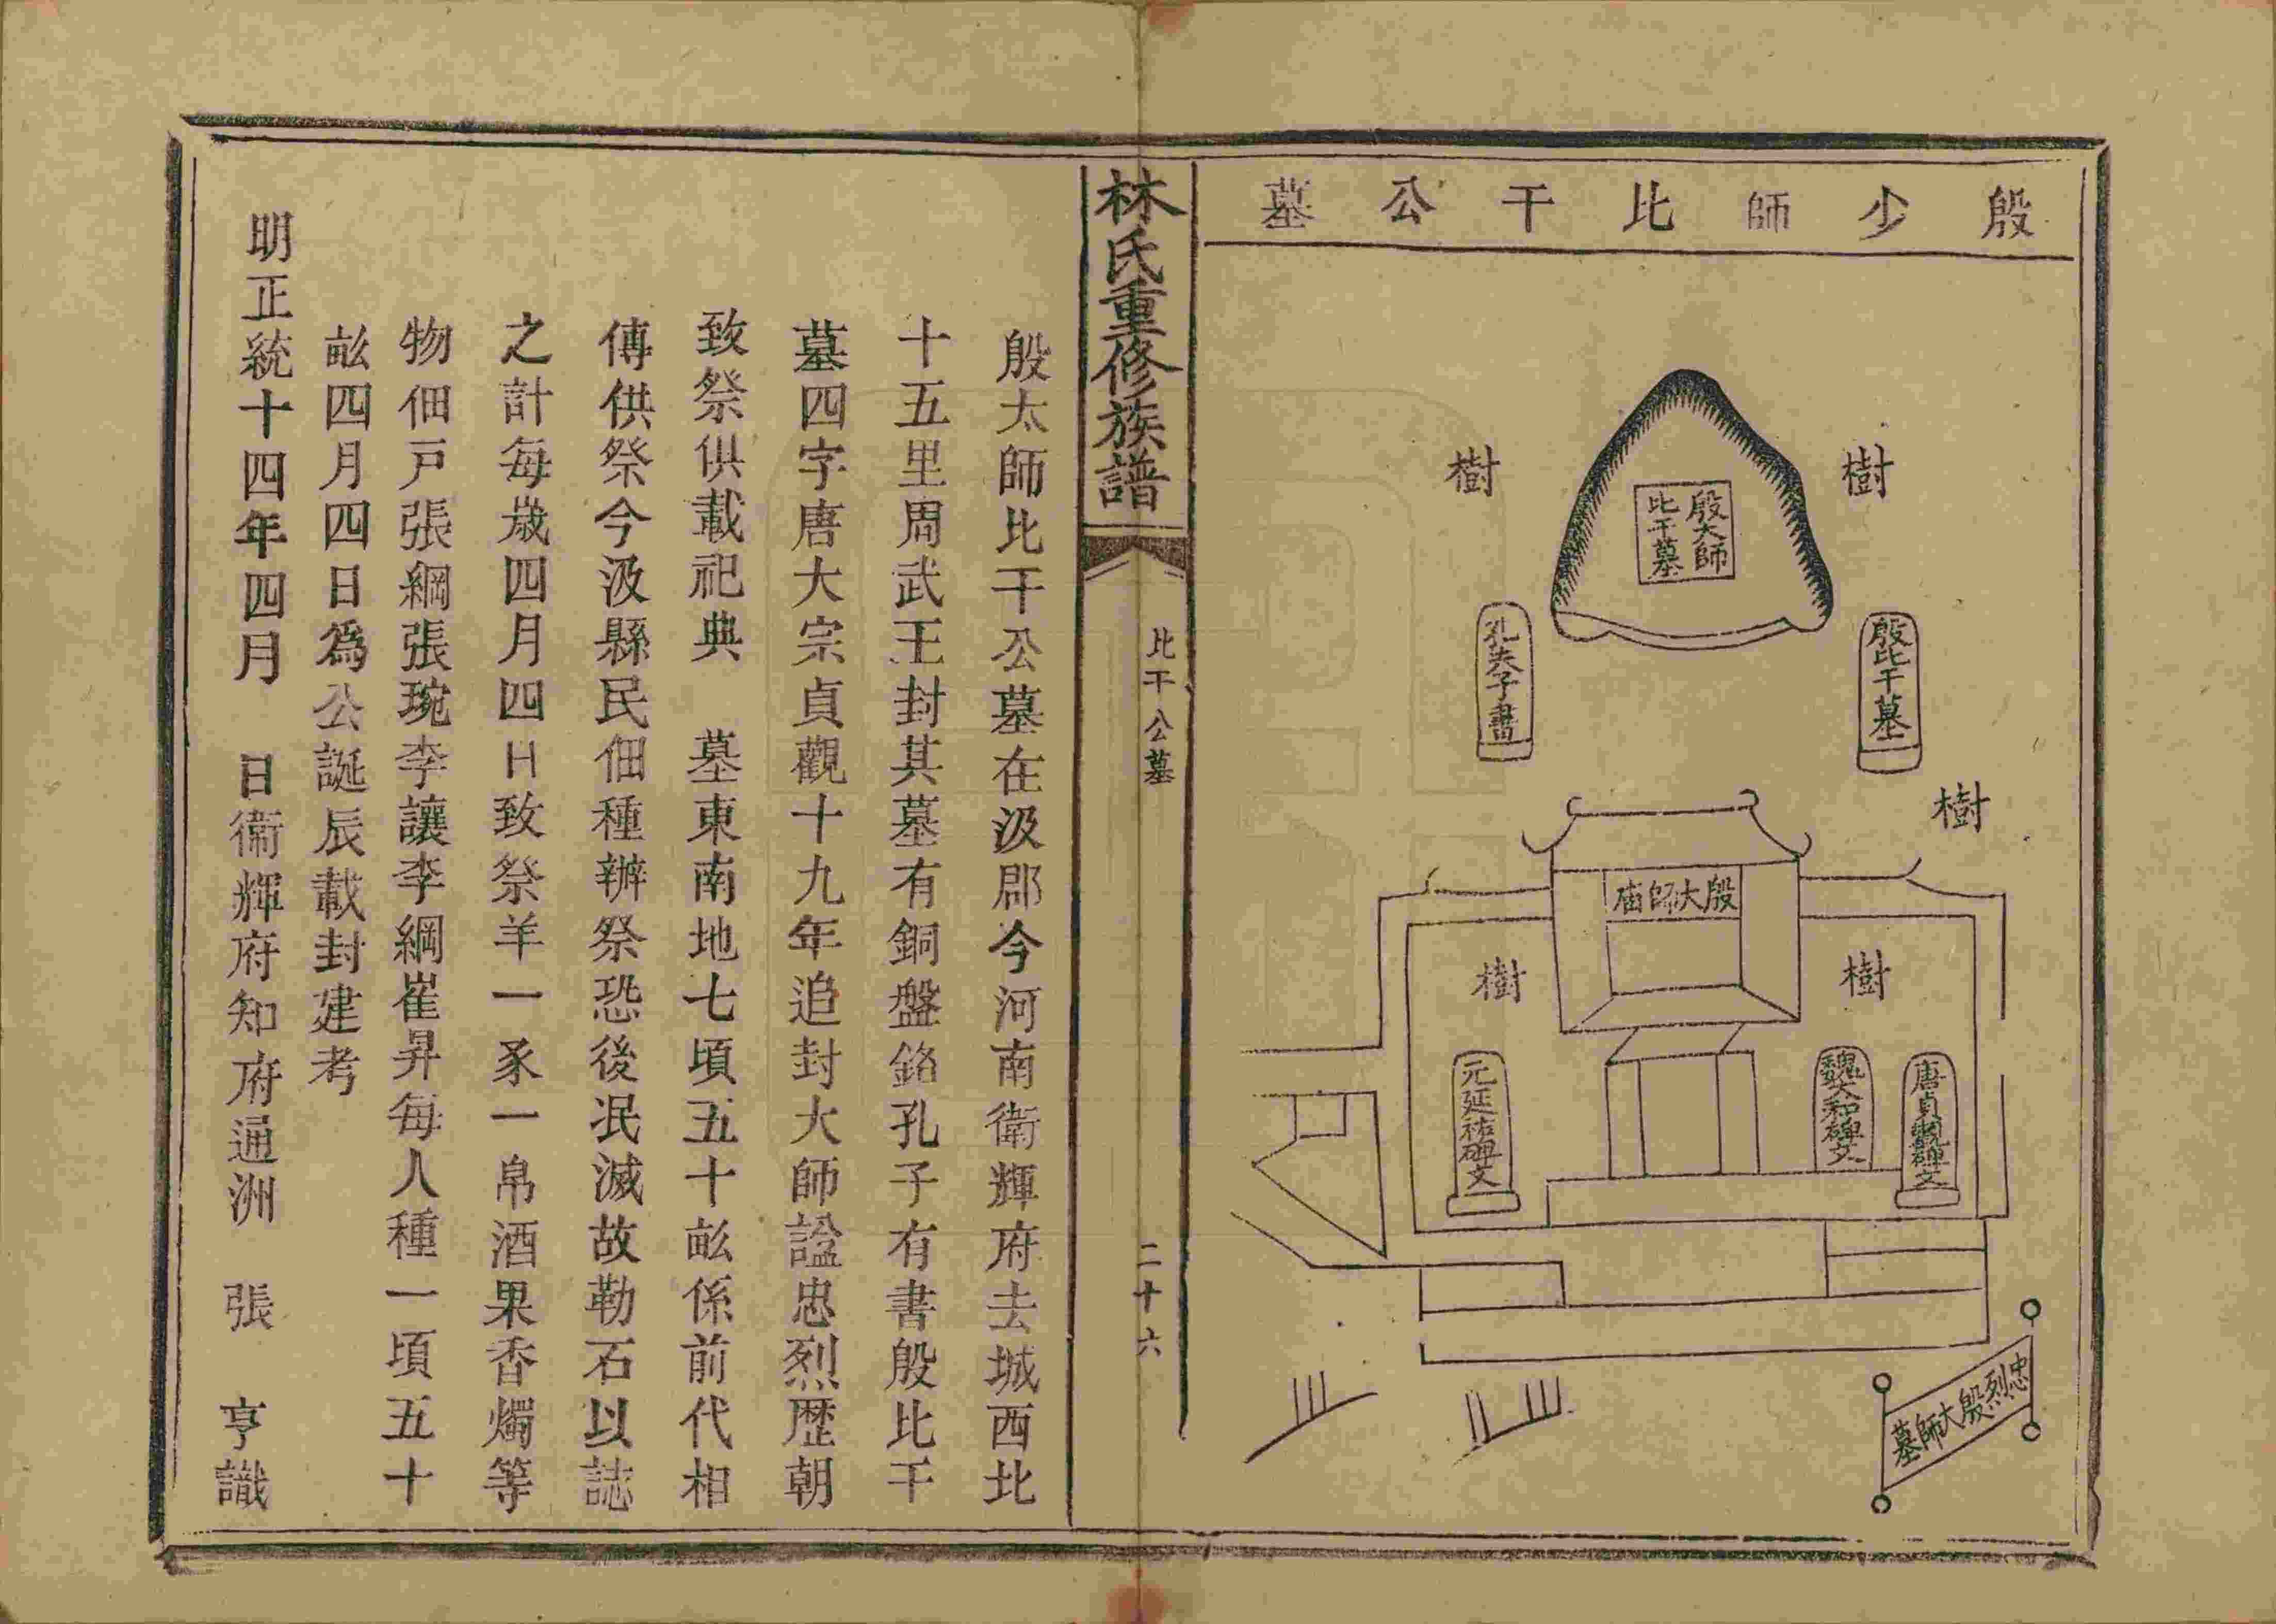 殷少師比干公墓
樹
樹
殷大師
比干墓
殷比干墓
孔夫子書
樹
殷大師庙
樹
樹
唐貞觀碑文
魏太和碑文
元延祐碑文
忠烈殷大師墓
林氏重修族譜
比干公墓
二十六
殷太師比干公墓在汲郡今河南衛輝府去城西北
十五里周武王封其墓有銅盤銘孔子有書殷比干
墓四字唐大宗貞觀十九年追封大師諡忠烈歷朝
致祭俱載祀典　墓東南地七頃五十畝係前代相
傳供祭今汲縣民佃種辦祭恐後泯滅故勒石以誌
之計每歲四月四日致祭羊一豕一帛酒果香燭等
物佃戸張綱張琬李讓李綱崔昇每人種一頃五十
畝四月四日為公誕辰載封建考
明正統十四年四月　日衛輝府知府通洲　張　亨識